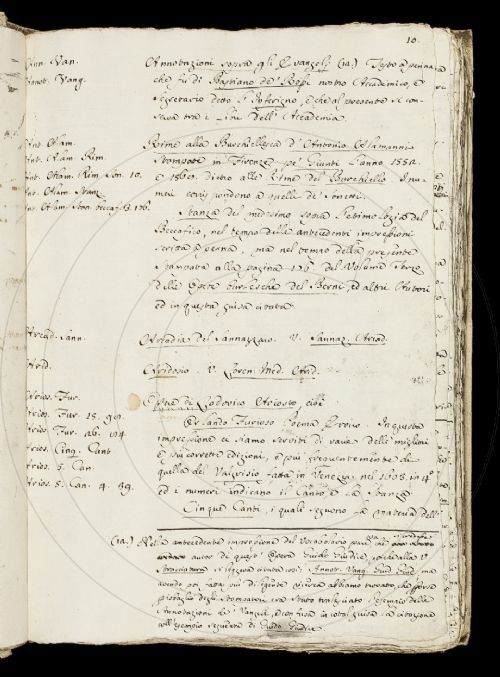 10.
Ann. Van.
Annot. Vang.
Annotazioni sopra gli Evangelj (1a.) Testo a penna
che fu di Bastiano de' Rossi nostro Accademico, e
Segretario detto l'Inferigno, e che al presente si con-
serva tra i Libri dell'Accademia.
Ant. Alam.
Ant. Alam. Rim.
Ant. Alam. Rim. Son. 10.
Ant. Alam. Stanz.
Ant. Alam. Stan. beccaf. 3. 176.
Rime alla Burchiellesca d'Antonio Alamanni
stampate in Firenze pe' Giunti l'anno 1552.
e 1568. dietro alle Rime del Burchiello. I nu-
meri corrispondono a quelli de' Sonetti.
Stanza del medesimo sopra l'etimologia del
Beccafico, nel tempo della antecedente impressione
scritta a penna, ma nel tempo della presente
stampata alla pagina 176. del Volume Terzo
delle Opere burlesche del Berni, ed altri Autori
ed in questa guisa citata
Arcad. Sann.
Arcadia del Sannazzaro. V. Sannaz. Arcad.
Arid.
Aridosio. V. Loren. Med. Arid.
Arios. Fur.
Arios. Fur. 15. 99.
Arios. Fur. 26.
Arios. Cinq. Cant.
Arios. 5. Can.
Arios. 5. Can. 4. 39.
Opere di Lodovico Ariosto, cioè
Orlando Furioso Poema Eroico. In questa
impressione ci siamo serviti di varie delle migliori
e più corrette edizioni, e più frequentemente di
quella del Valgrisio fatta in Venezia nel 1603. in 4°
ed i numeri indicano il Canto e la Stanza
Cinque Canti, i quali seguono la materia del
(1a.) Nella antecedente impressione del Vocabolario
autor di quest'Opera Guido Giudice, poichè alla V.
Stracciatura si leggeva citato così: Annot. Vang. Guid. Giud. ma
avendo poi fatta più diligente ricerca abbiamo trovato, che
degli stampatori era stato tralasciato l'esempio delle
Annotazioni de' Vangeli, e confusa in cotal guisa la citazione
coll'esempio seguente di Guido Giudice.